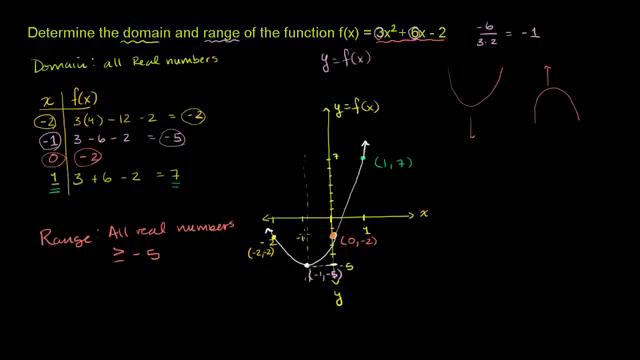 Determine the domain and range of the function f(x) = 3x² + 6x - 2
-6 / 3·2 = -1
Domain: all Real numbers
y = f(x)
x f(x)
-2 3(4) - 12 - 2 = -2
-1 3 - 6 - 2 = -5
0 -2
1 3 + 6 - 2 = 7
Range: All real numbers
≥ -5
y = f(x)
7
(1, 7)
x
-2
1
(0, -2)
(-2, -2)
-5
(-1, -5)
y